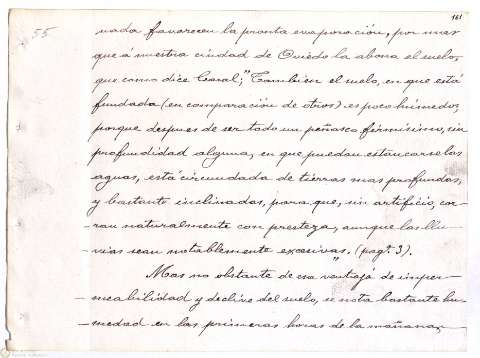 161
55
nada favorecen la pronta evaporación, por mas
que á nuestra ciudad de Oviedo la abona el suelo,
que como dice Casal; "Tambien el suelo, en que está
fundada (en comparación de otros) es poco húmedo;
porque despues de ser todo un peñasco firmísimo, sin
profundidad alguna, en que puedan estancarse las
aguas, está circundada de tierras mas profundas,
y bastante inclinadas, para que, sin artificio, cor-
ran naturalmente con presteza, aunque las llu-
-vias sean notablemente excesivas". (pagª 3).
Mas no obstante de esa ventaja de imper-
-meabilidad y declive del suelo, se nota bastante hu-
-medad en las primeras horas de la mañana,